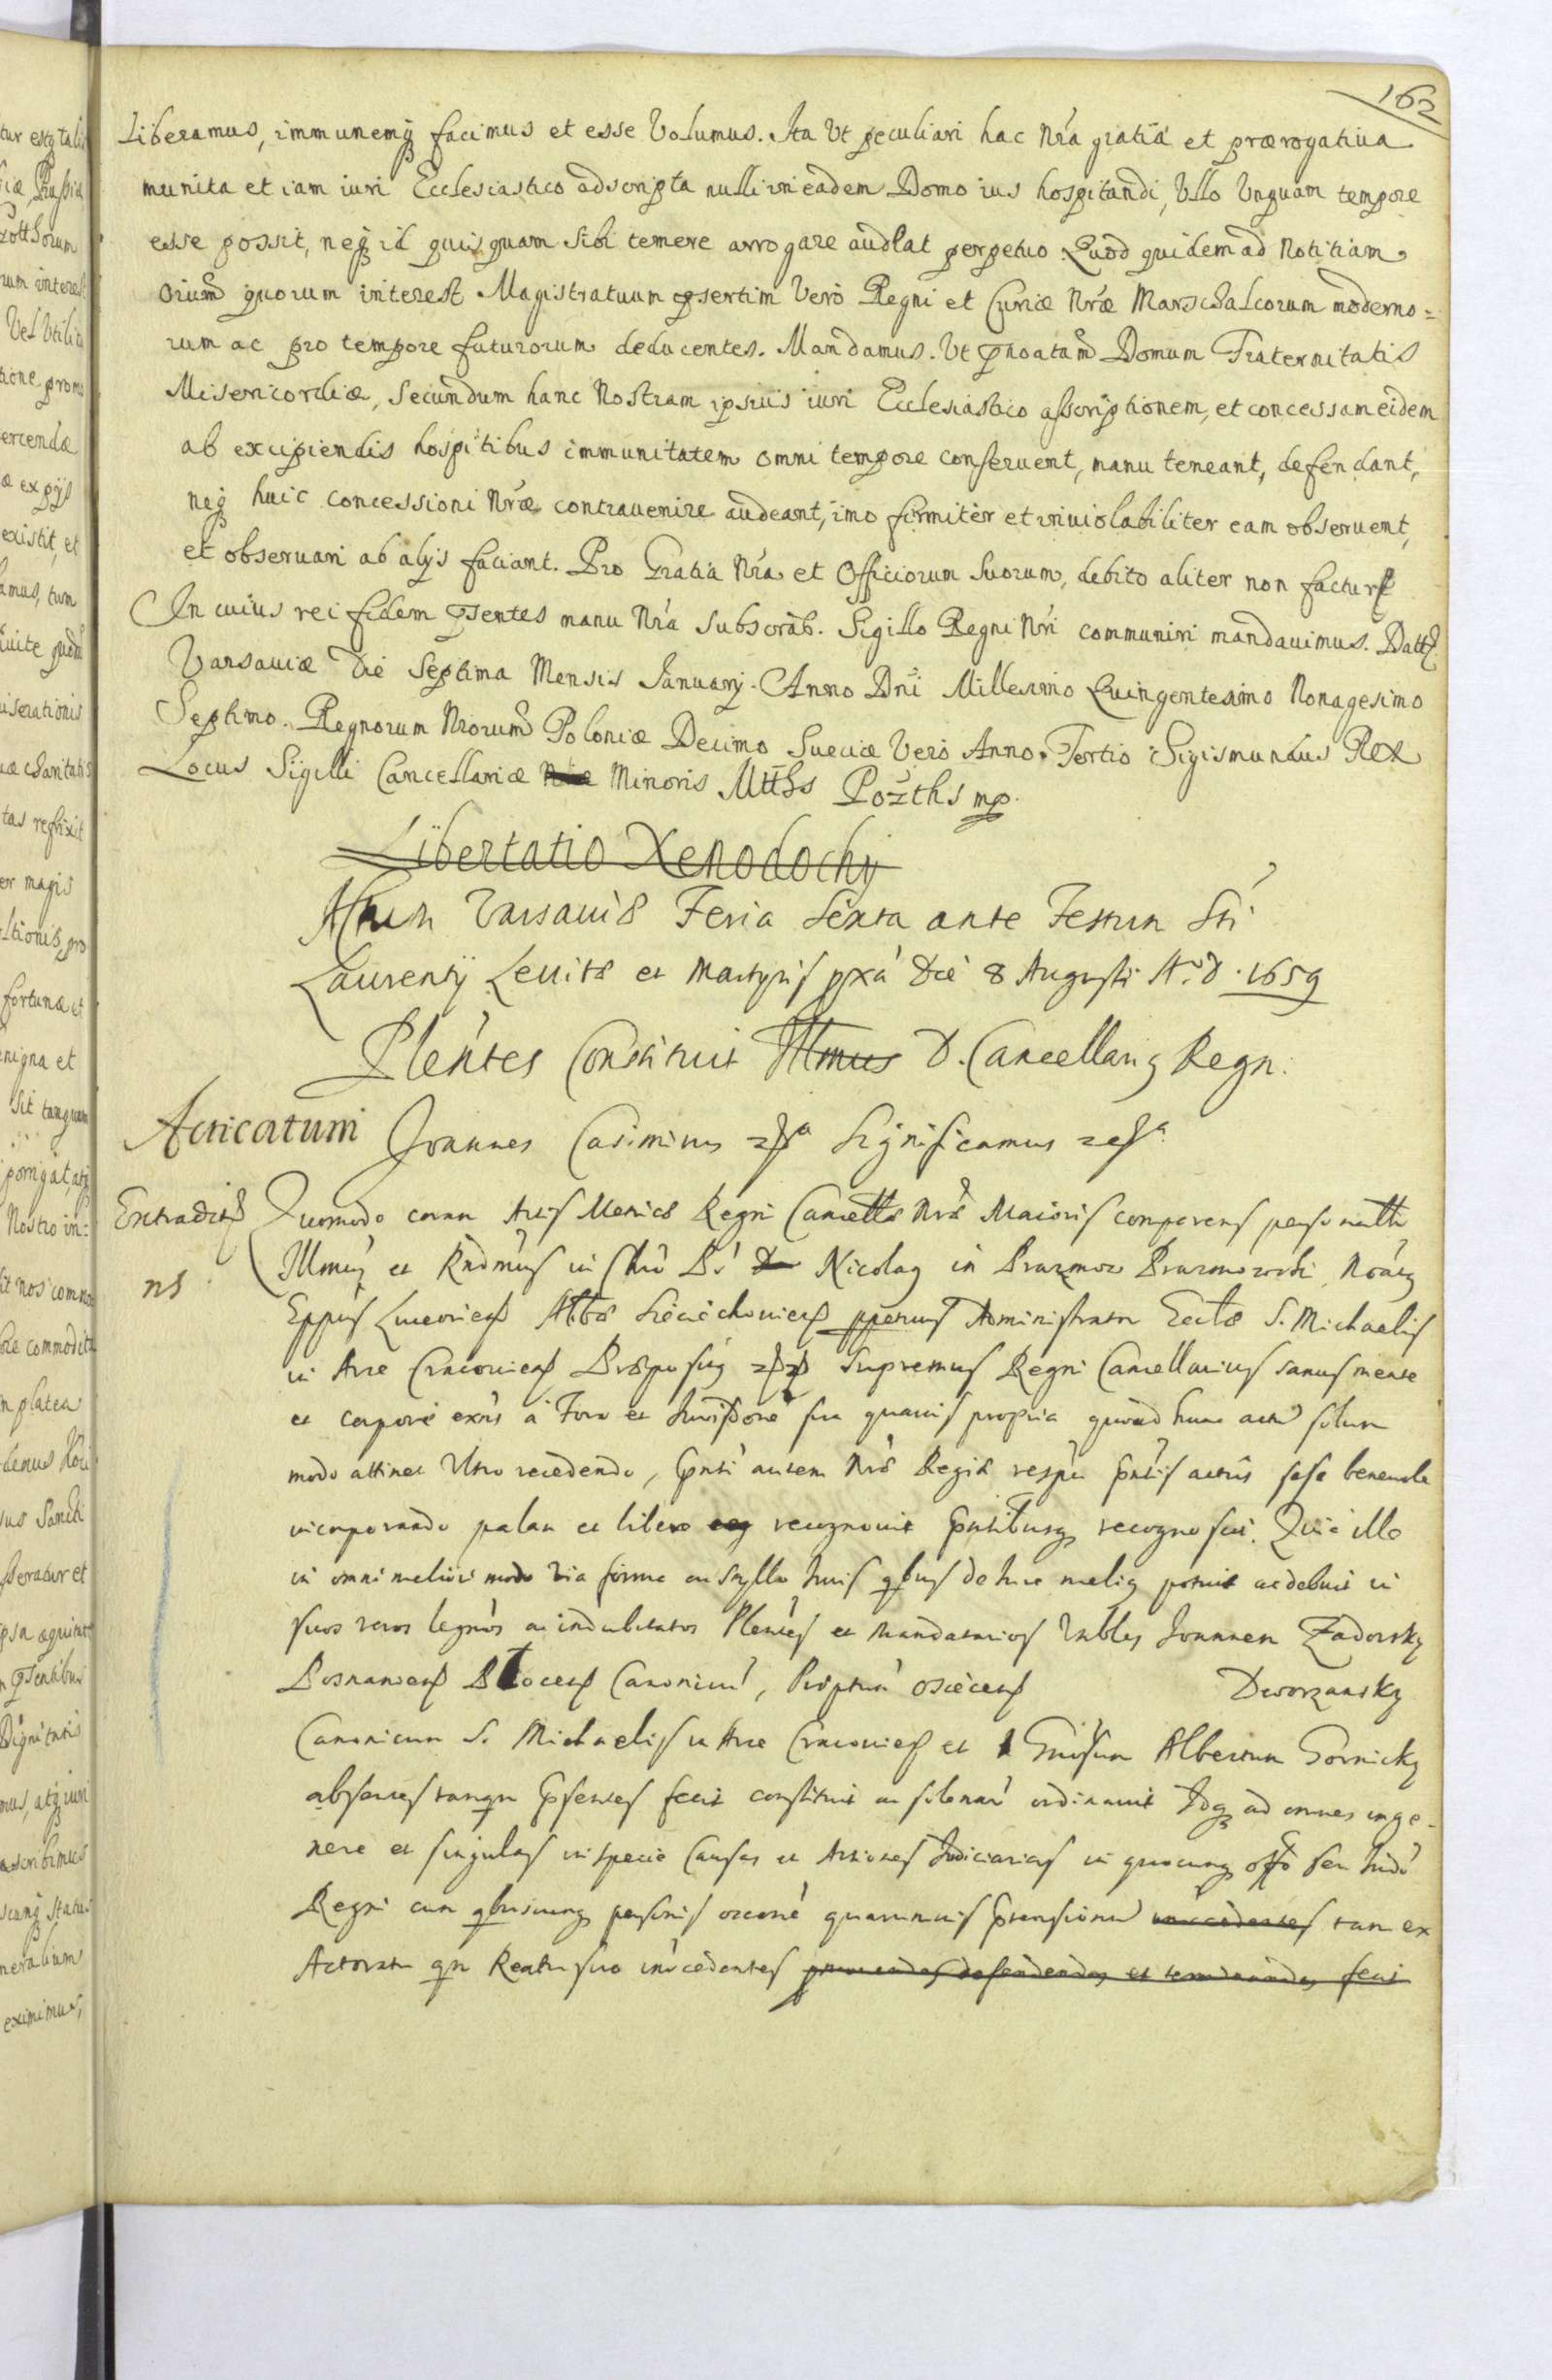 162
Liberamus, immunemq facimus et esse Volumus. Ita Vt peculiari hac Nrá gratiâ et prærogatiua
munita et iam iuri Ecclesiastico adscripta nulli in eadem Domo ius hospitandi, Vllo Vnquam tempore
esse possit, neq id quisquam sibi temere arrogare audeat perpetuo. Quod quidem ad Notitiam
oium quorum interest Magistratuum psertim Verò Regni et Curiæ Nræ Marschalcorum moderno=
rum ac pro tempore futurorum deducentes. Mandamus. Vt pnoatam Domum Fraternitatis
Misericordiæ, Secundum hanc Nostram ipsius iuri Ecclesiastico asscriptionem, et concessam eidem
ab excipiendis hospitibus immunitatem omni tempore conseruent, manu teneant, defendant,
neq huic concessioni Nræ contrauenire audeant, imo firmitèr et inuiolabiliter eam obseruent,
et obseruari ab alijs faciant. Pro Gratia Nrá et Officiorum Suorum, debito aliter non factur
In cuius rei fidem psentes manu Nrá Subscráb. Sigillo Regni Nri communiri mandauimus. Datt
Varsauiæ Die Septima Mensis Januarij. Anno Dni Millesimo Quingentesimo Nonagesimo
Septimo. Regnorum Nrorum Poloniæ Decimo Sueciæ Verò Anno. Tertio Sigismundus Rex
Locus Sigilli Cancellariæ Minoris Mtths Pozths mp.
Libertatio Xenodochij
Actum Varsauiæ Feria Sexta ante Festum Sti
Laurentij Leuitæ et Martyris pxá Die 8 Augusti A. D. 1659
Plentes Constituit Illmus D. Cancellarig Regn.
Acticatum Joannes Casimirus Significamus
Extradit Quomodo coram Actis Metricæ Regni Cancellæ Nræ Maioris comparens personalitr
Illmus et Rndmus in Chro Nicolaq in Prazmow Prazmowski Noatq
ns
Eppus Luceoriens Abbas Sieciechouiens ppetuus Administrator Eccle S. Michaelis
in Arce Cracouiens Præpositq Supremus Regni Cancellarius sanus mente
et corpore exns à Foro et Jurisdone sua quauis propria quoad hunc actu solum
modo attinet Vltro recedendo, pnti autem Næ Regiæ respu pntis actus sese beneuole
incorporando palam et libere recognouit pntibusq recognoscit. Quia ille
in omni meliori modo via forma ac stylo Juris qbus de Jure melig potuit ac debuit in
suos veros legmos ac indubitatos Plentes et Mandatarios Vnbles Joannem Zadorsky
Posnaniens Canonicu, Præptum osiecens Dworzansky
Canonicum S. Michaelis in Arce Cracouiens et Albertum Gornicky
absentes tanqm psentes fecit constituit ac solenar ordinauit Idq ad omnes in ge-
nere et singulas in specie Causas et Actiones Judiciarias in quocunq offo seu Judo
Regni cum qbuscunq personis oconé quarumuis ptensionu tam ex
Actoratu qm Reatu suo incedentes